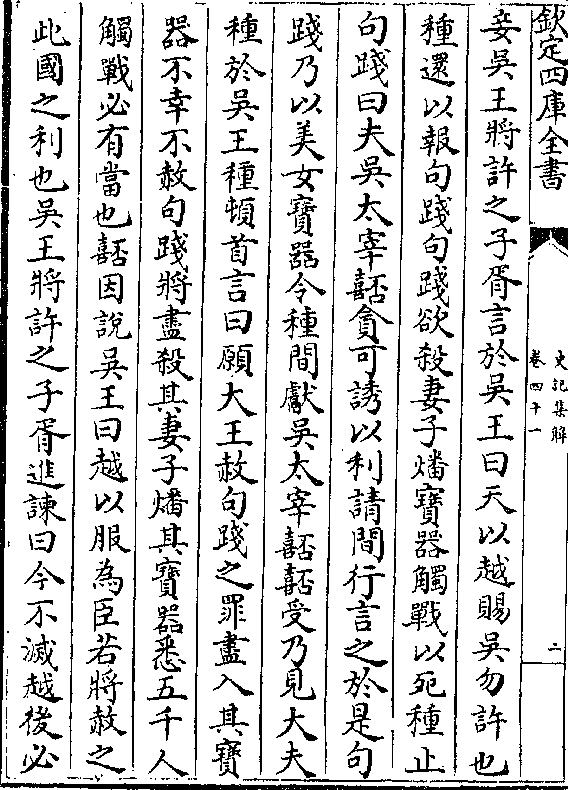 欽定四庫全書
史記集解
卷四十一
二
妾吳王將許之子胥言於吳王曰天以越賜吳勿許也
種還以報句踐句踐欲殺妻子燔寶器觸戰以死種止
句踐曰夫吳太宰嚭貪可誘以利請間行言之於是句
踐乃以美女寶器令種間獻吳太宰嚭嚭受乃見大夫
種於吳王種頓首言曰願大王赦句踐之罪盡入其寶
器不幸不赦句踐將盡殺其妻子燔其寶器悉五千人
觸戰必有當也嚭因說吳王曰越以服為臣若將赦之
此國之利也吳王將許之子胥進諫曰今不滅越後必